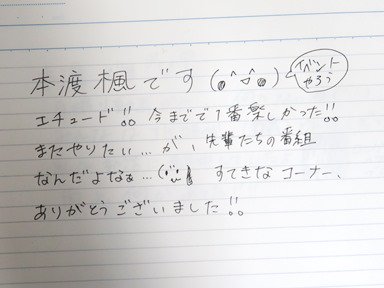 本渡楓です(๑^ᾥ^๑)
イベント
やろう
エチュード!! 今までで1番楽しかった!!
またやりたい…が、先輩たちの番組
なんだよなぁ… すてきなコーナー、
ありがとうございました!!